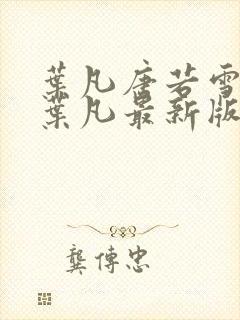 葉凡唐若雪
葉凡最新版
龔傳忠